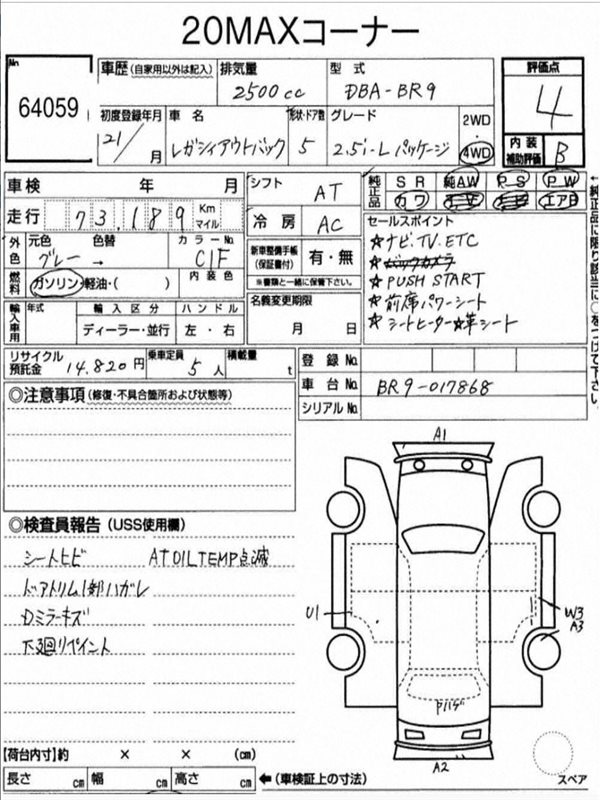 20MAXコーナー
No.
64059
車歴 (自家用以外は記入)
排気量
2500cc
型式
DBA-BR9
評価点
4
内装
補助評価
B
初度登録年月
21/
月
車名
レガシィアウトバック
形状・ドア数
5
グレード
2.5i-Lパッケージ
2WD
・
4WD
車検 年 月
走行 73,189 Km
マイル
シフト AT
冷房 AC
純正品
SR 純AW PS PW
カワ エアB
←純正品に限り該当に○をつけて下さい。
外色
元色 色替
グレー →
カラーNo.
C1F
燃料
ガソリン・軽油・( )
内装色
新車整備手帳
(保証書付)
有・無
※書類と一緒に保管下さい。
名義変更期限
月 日
セールスポイント
☆ナビ.TV.ETC
☆バックカメラ
☆PUSH START
☆前席パワーシート
☆シートヒーター☆革シート
輸入車用
年式
輸入区分
ディーラー・並行
ハンドル
左・右
リサイクル
預託金
14.820円
乗車定員
5人
積載量
t
登録No.
車台No. BR9-017868
シリアルNo.
◎注意事項(修復・不具合箇所および状態等)
◎検査員報告(USS使用欄)
シートヒビ ATOILTEMP点滅
ドアトリム1部ハガレ
Dミラーキズ
下廻りペイント
A1
U1
W3
A3
A2
スペア
【荷台内寸】約 × × (cm)
長さ cm 幅 cm 高さ cm ←(車検証上の寸法)